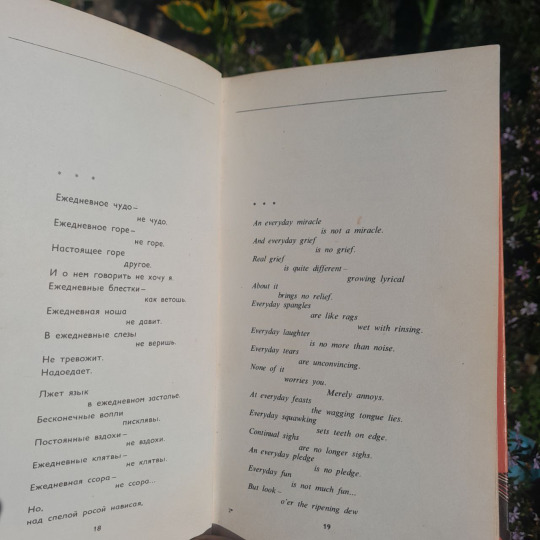 * * *
Ежедневное чудо–
не чудо.
Ежедневное горе–
не горе.
Настоящее горе
другое.
И о нем говорить не хочу я.
Ежедневные блестки–
как ветошь.
Ежедневная ноша
не давит.
В ежедневные слезы
не веришь.
Не тревожит.
Надоедает.
Лжет язык
в ежедневном застолье.
Бесконечные вопли
писклявы.
Постоянные вздохи–
не вздохи.
Ежедневные клятвы–
не клятвы.
Ежедневная ссора–
не ссора...
Но,
над спелой росой нависая,
18
* * *
An everyday miracle
is not a miracle.
And everyday grief
is no grief.
Real grief
is quite different–
growing lyrical
About it
brings no relief.
Everyday spangles
are like rags
wet with rinsing.
Everyday laughter
is no more than noise.
Everyday tears
are unconvincing.
None of it
worries you.
Merely annoys.
At everyday feasts
the wagging tongue lies.
Everyday squawking
sets teeth on edge.
Continual sighs
are no longer sighs.
An everyday pledge
is no pledge.
Everyday fun
is not much fun...
But look–
o'er the ripening dew
19